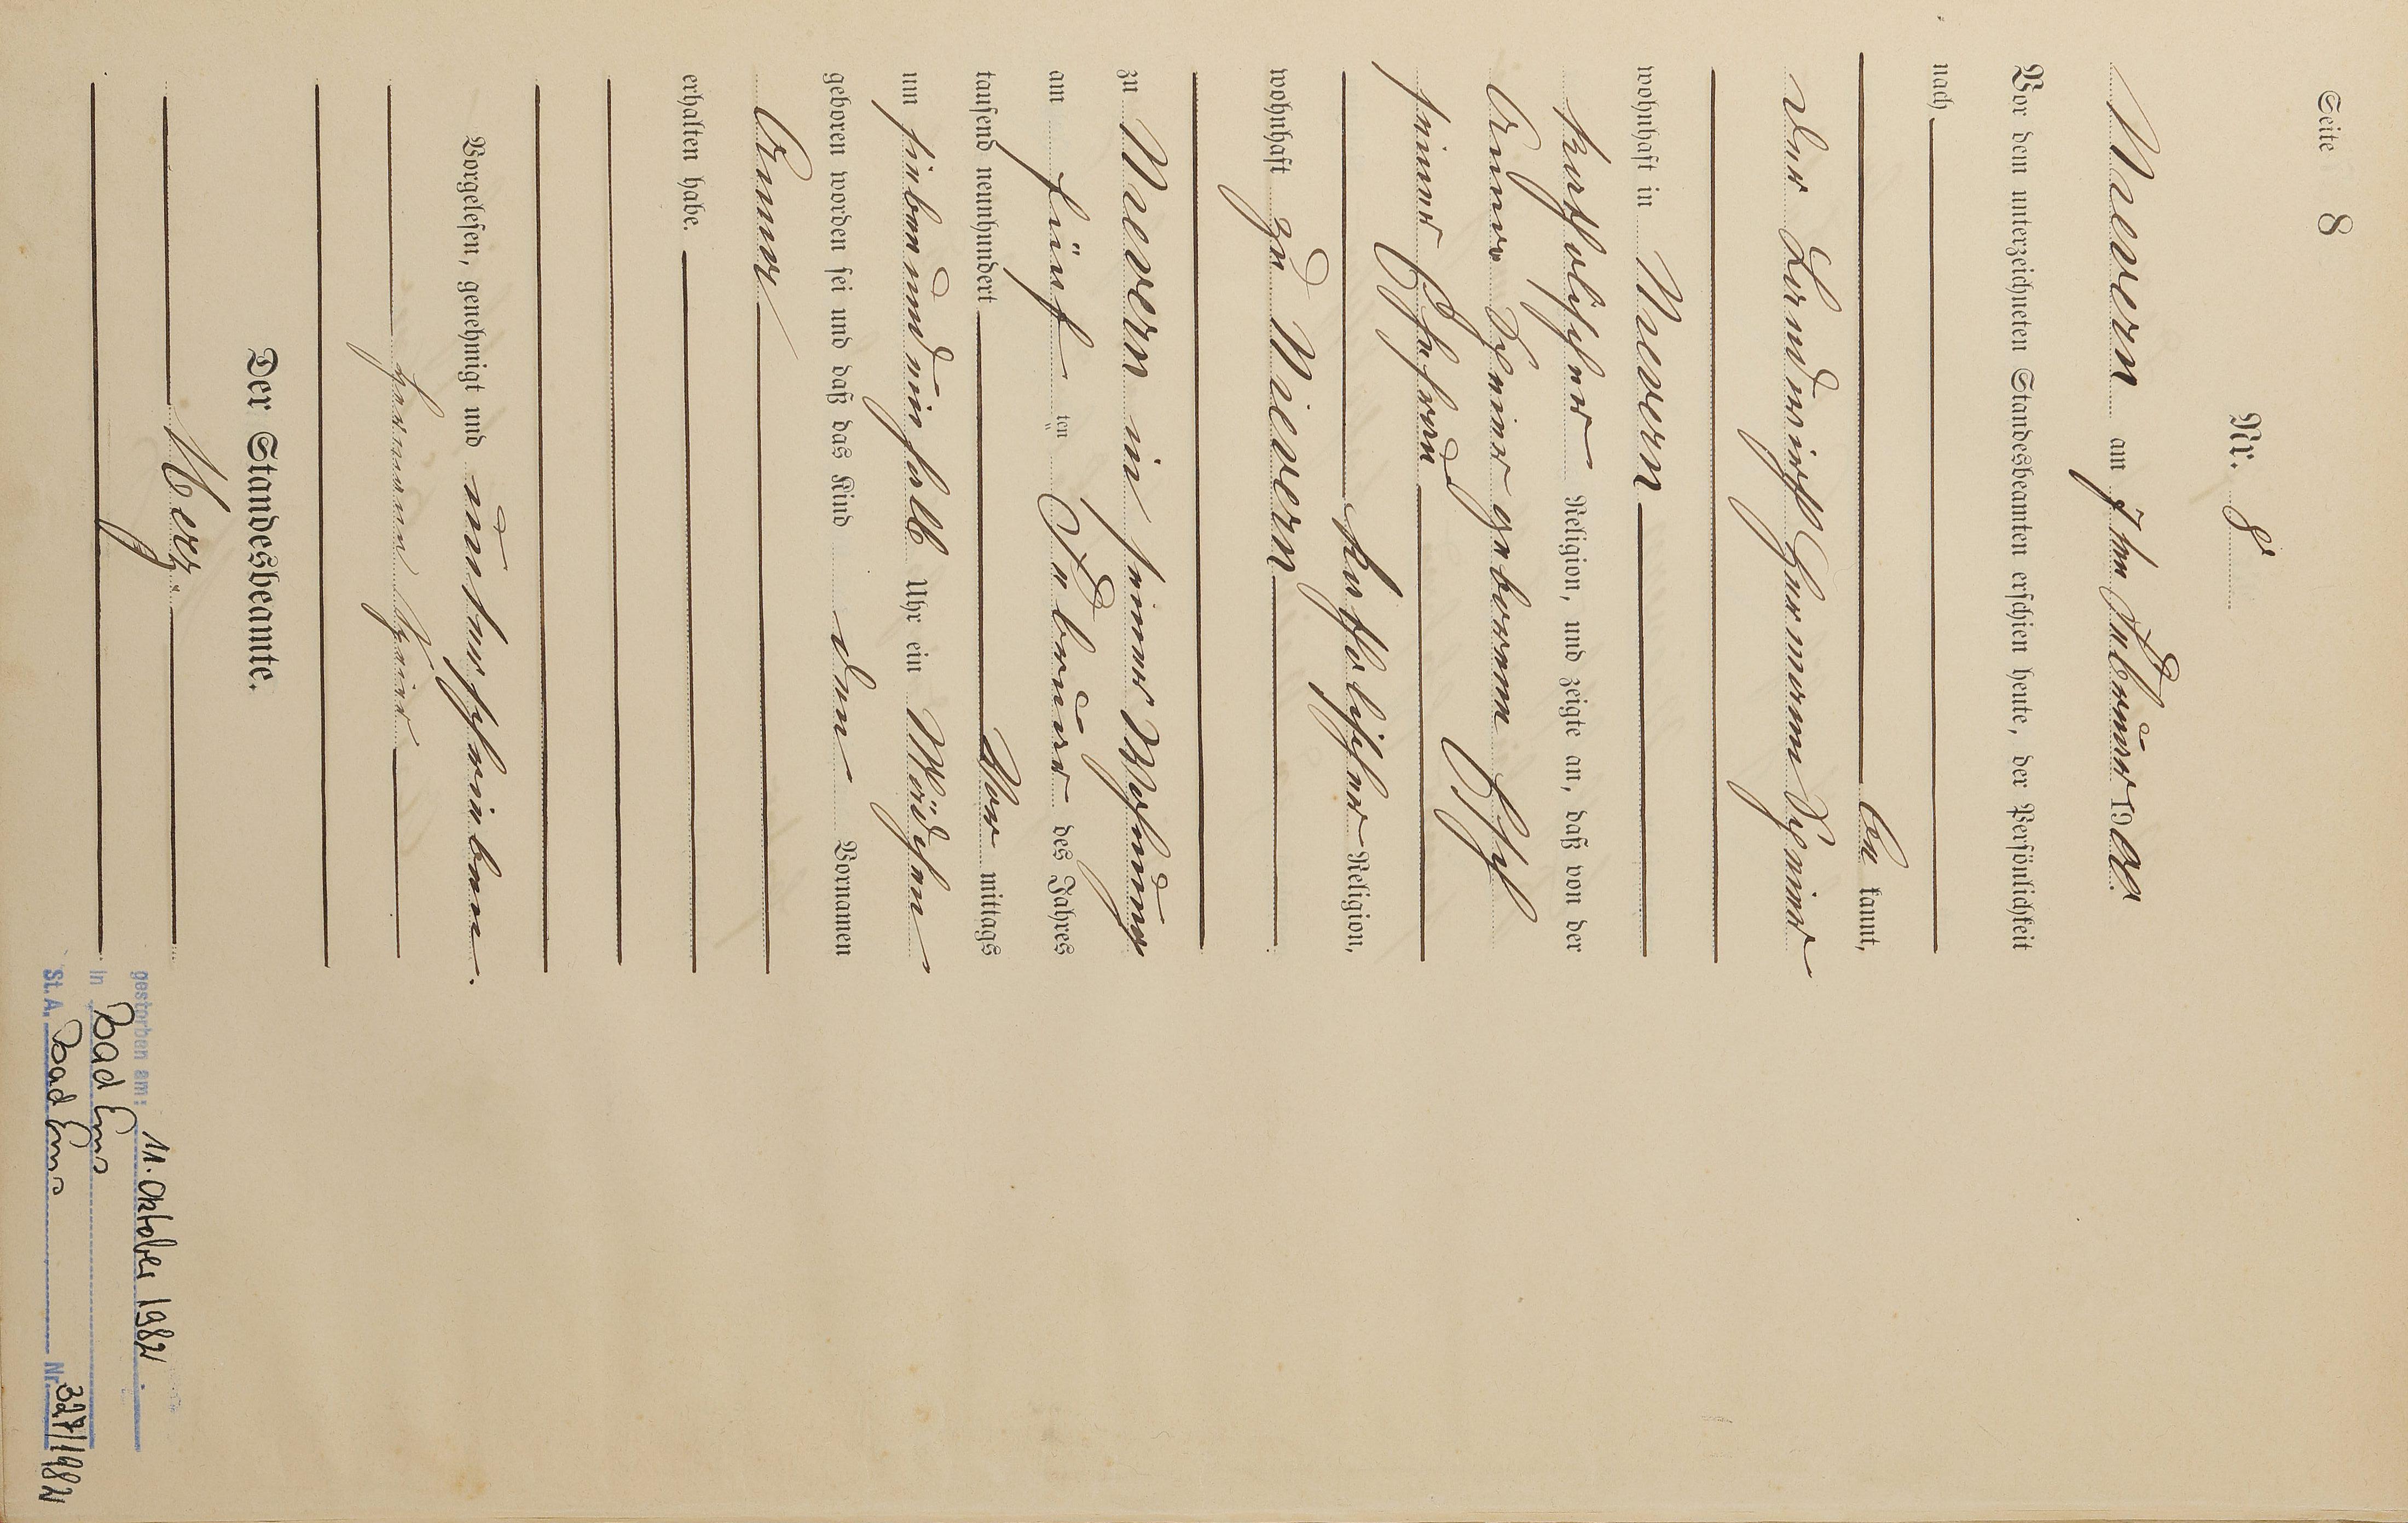 Seite 8
Nr. 8
Nievern am 7ten Februar 1900
Vor dem unterzeichneten Standesbeamten erschien heute, der Persönlichkeit
nach
be kannt,
der Landwirth Hermann
wohnhaft in Nievern
katholischer Religion, und zeigte an, daß von der
Anna geborenen
seiner Ehefrau
katholischer Religion,
wohnhaft zu Nievern
zu Nievern in seiner Wohnung
am fünf ten Februar des Jahres
tausend neunhundert Vor mittags
um sieben und ein halb Uhr ein Mädchen
geboren worden sei und daß das Kind den Vornamen
Anna
erhalten habe.
Vorgelesen, genehmigt und unterschrieben.
Hermann
Der Standesbeamte.
Merz.
gestorben am: 11. Oktober 1982
in Bad Ems
St. A. Bad Ems Nr. 327/1982